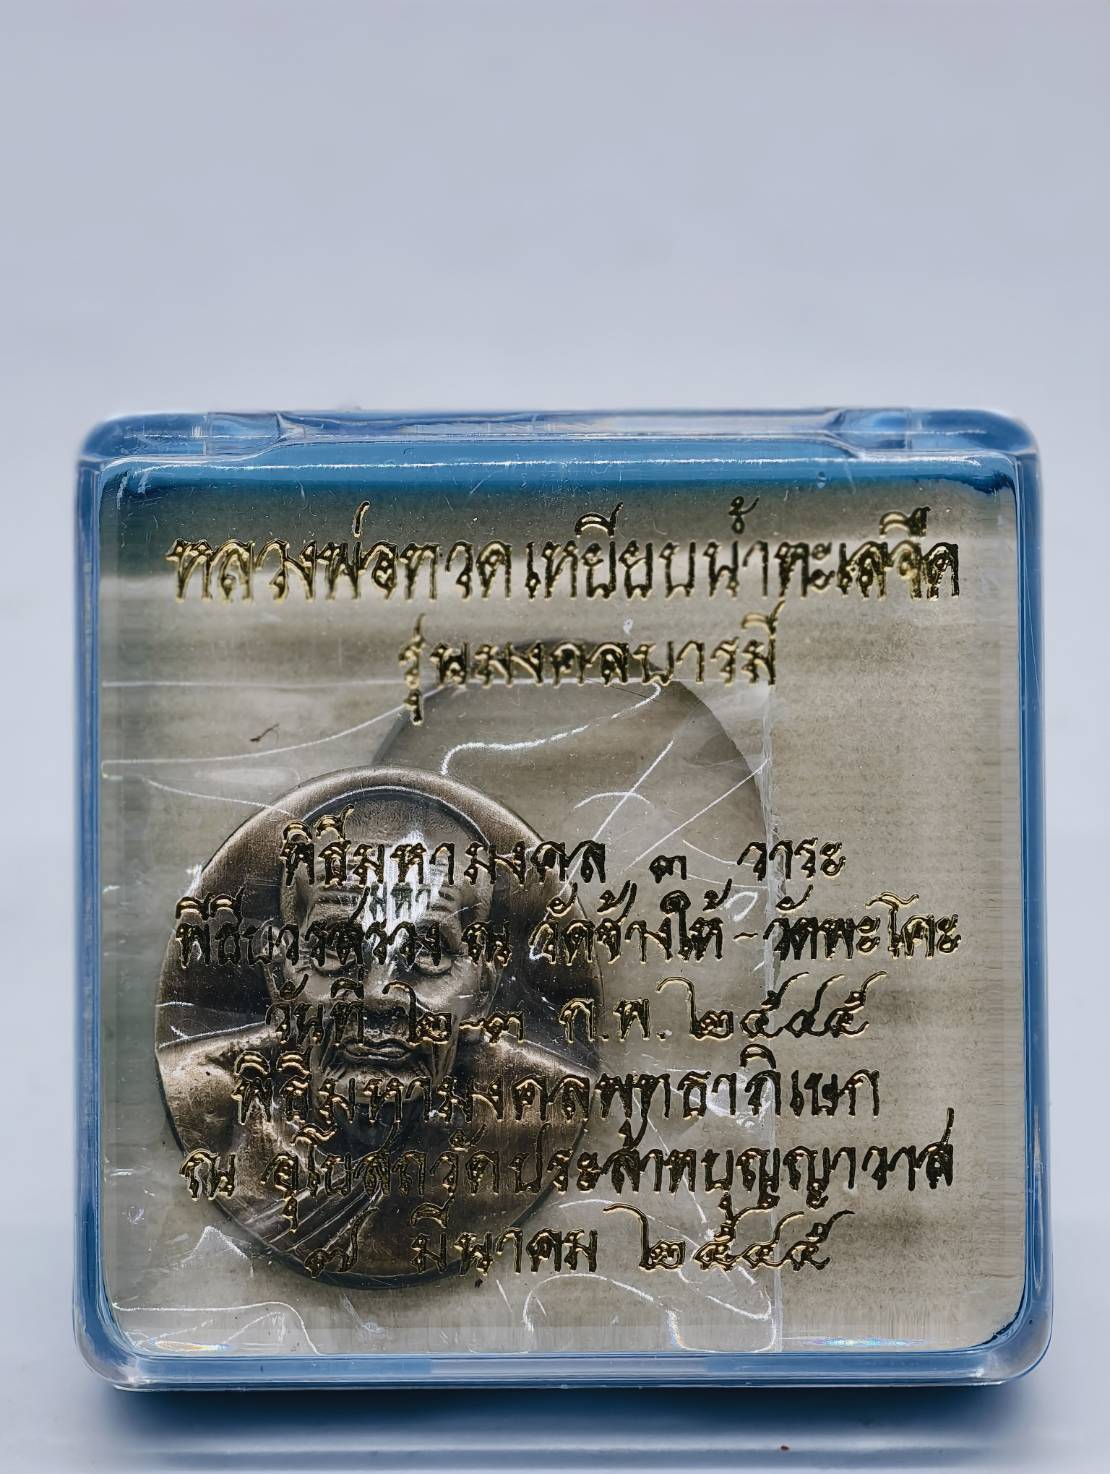 หลวงพ่อทวดเหยียบน้ำทะเลจืด
รุ่นมงคลบารมี
พิธีมหามงคล ๓ วาระ
พิธีบวงสรวง ณ วัดช้างให้ - วัดพะโคะ
วันที่ ๒-๓ ก.พ. ๒๕๔๕
พิธีมหามงคลพุทธาภิเษก
ณ อุโบสถวัดประสาทบุญญาวาส
๗ มีนาคม ๒๕๔๕